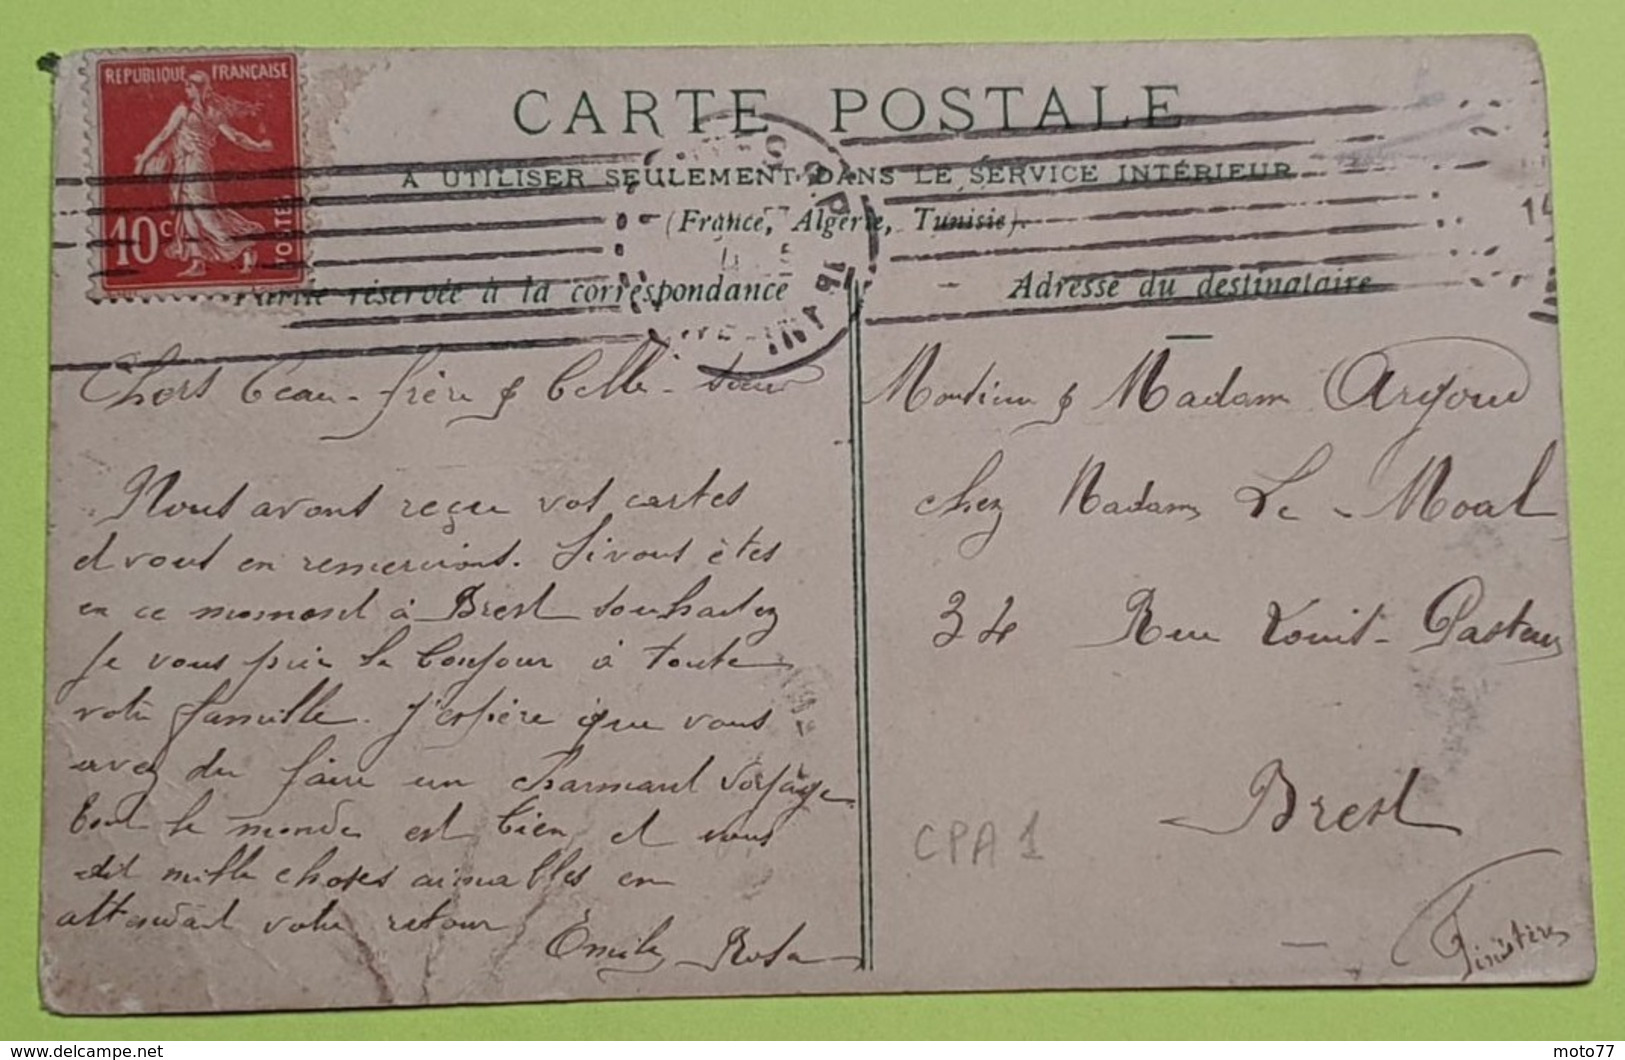 RÉPUBLIQUE FRANÇAISE
10c
POSTES
CARTE POSTALE
A UTILISER SEULEMENT DANS LE SERVICE INTÉRIEUR
(France, Algérie, Tunisie).
Partie réservée à la correspondance
Adresse du destinataire
Chers beau-frère & belle-sœur
Nous avons reçu vos cartes
et vous en remercions. Si vous êtes
en ce moment à Brest souhaitez
je vous prie le bonjour à toute
votre famille. J'espère que vous
avez du faire un charmant voyage
tout le monde est bien et vous
dit mille choses aimables en
attendant votre retour
Emile Rosa
Monsieur & Madame Argoud
chez Madame Le Moal
34 Rue Louis-Pasteur
Brest
Finistère
CPA 1
delcampe.net
moto77